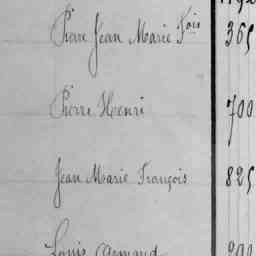 Pierre Jean Marie Fois 365
Pierre Henri 700
Jean Marie François 825
Louis Armand